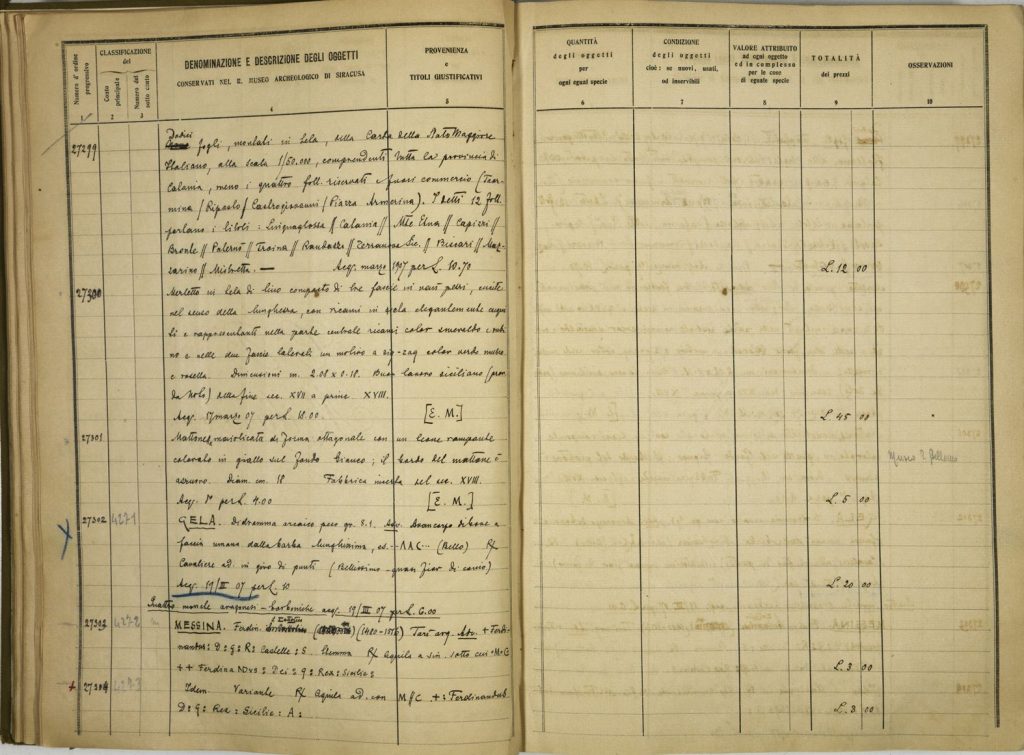 Numero d'ordine progressivo
CLASSIFICAZIONE del
Conto principale
Numero del sotto conto
DENOMINAZIONE E DESCRIZIONE DEGLI OGGETTI
CONSERVATI NEL R. MUSEO ARCHEOLOGICO DI SIRACUSA
PROVENIENZA
e
TITOLI GIUSTIFICATIVI
1 2 3 4 5
27299
Dodici
fogli, montati in tela, della Carta dello Stato Maggiore
Italiano, alla scala 1/50.000, comprendenti tutta la provincia di
Catania, meno i quattro foll. riservati e fuori commercio (Taor-
mina / Riposto / Castrogiovanni / Piazza Armerina). I detti 12 foll.
portano i titoli: Linguaglossa // Catania // Mte Etna // Capizzi //
Bronte // Paternò // Troina // Randazzo // Terranova Sic. // Biscari // Maz-
zarino // Mistretta. — Acq. marzo 1907 per L. 10.70
27300
Merletto in tela di lino composto di tre fascie in vari pezzi, cucite
nel senso della lunghezza, con ricami in seta elegantemente
ti e rappresentanti nella parte centrale ricami color smeraldo e rubi-
no e nelle due fascie laterali un motivo a zig-zag color verde
e rosella. Dimensioni m. 2.08 x 0.18. Buon lavoro siciliano
da Noto) della fine sec. XVII a princ. XVIII.
Acq. 17 marzo 07 per L. 18.00 [E. M.]
27301
Mattonella maiolicata di forma ottagonale con un leone rampante
colorato in giallo sul fondo bianco; il bordo del mattone è
azzurro. Diam. cm. 18 Fabbrica incerta del sec. XVIII.
Acq. per L. 4.00 [E. M.]
27302 4271
GELA. Didramma arcaico peso gr. 8.1. Avo. Avancorpo di bove a
faccia umana dalla barba lunghissima, es. (Bello) R/
Cavaliere ad. in giro di punti (Bellissimo - quasi fior di conio)
Acq. 19/III 07 per L. 10
Quattro monete aragonesi - borboniche acq. 19/III 07 per L. 6.00
27303 4272
MESSINA. Ferdin. il Cattolico (1480-1516) Tarì arg. Avo. + Ferdi-
nandus: D: G: R: Castelle: S. Stemma R/ Aquila a sin. sotto cui M C
++ Ferdinandus: Dei: G: Rex: Sicilie:
27304 4273
Idem. Variante R/ Aquila ad. con M C +: Ferdinandus
D: G: Rex: Sicilie: A:
QUANTITÀ
degli oggetti
per
ogni egual specie
CONDIZIONE
degli oggetti
cioè: se nuovi, usati,
od inservibili
VALORE ATTRIBUITO
ad ogni oggetto
ed in complesso
per le cose
di eguale specie
TOTALITÀ
dei prezzi
OSSERVAZIONI
6 7 8 9 10
L. 12 00
L. 45 00
Museo P. Bellomo
L. 5 00
L. 20 00
L. 3 00
L. 3 00